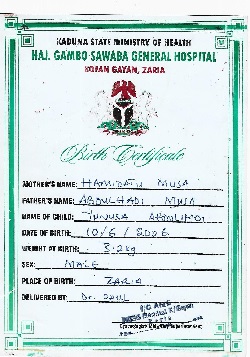 KADUNA STATE MINISTRY OF HEALTH
HAJ. GAMBO SAWABA GENERAL HOSPITAL
KOFAN GAYAN, ZARIA
Birth Certificate
MOTHER'S NAME: HAMIDATU MUSA
FATHER'S NAME: ABDULHADI MUSA
NAME OF CHILD: YUNUSA ABDULHADI
DATE OF BIRTH: 10/6/2006
WEIGHT AT BIRTH: 3.2kg
SEX: MALE
PLACE OF BIRTH: ZARIA
DELIVERED BY: Dr.